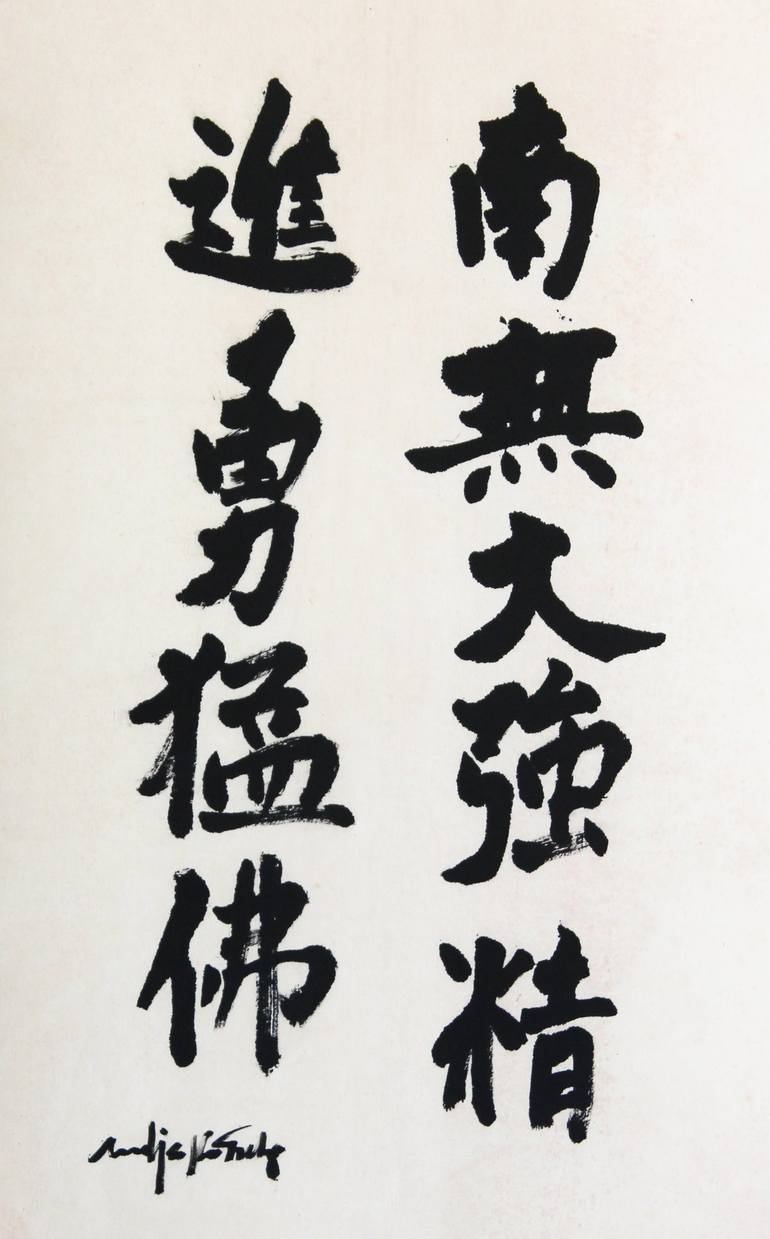 南無大強精
進勇猛佛